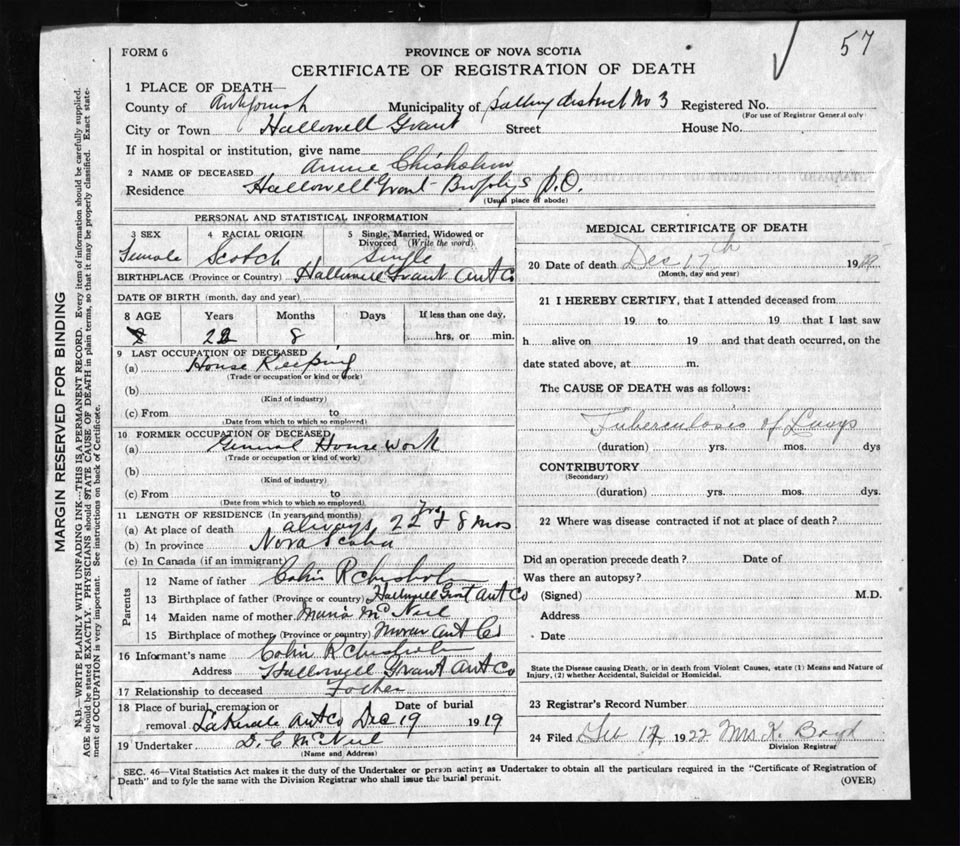 57
FORM 6
PROVINCE OF NOVA SCOTIA
CERTIFICATE OF REGISTRATION OF DEATH
1 PLACE OF DEATH—
County of Antigonish Municipality of district No 3 Registered No.
(For use of Registrar General only)
City or Town Hallowell Grant Street House No.
If in hospital or institution, give name
2 NAME OF DECEASED Annie Chisholm
Residence Hallowell Grant P.O.
(Usual place of abode)
PERSONAL AND STATISTICAL INFORMATION
3 SEX 4 RACIAL ORIGIN 5 Single, Married, Widowed or Divorced (Write the word)
Female Scotch Single
BIRTHPLACE (Province or Country) Hallowell Grant Ant Co
DATE OF BIRTH (month, day and year)
8 AGE Years Months Days If less than one day,
22 8 hrs. or min.
9 LAST OCCUPATION OF DECEASED
(a) House Keeping
(Trade or occupation or kind or work)
(b)
(Kind of industry)
(c) From to
(Date from which to which so employed)
10 FORMER OCCUPATION OF DECEASED
(a) General House work
(Trade or occupation or kind of work)
(b)
(Kind of industry)
(c) From to
(Date from which to which so employed)
11 LENGTH OF RESIDENCE (In years and months)
(a) At place of death always 22 yrs & 8 mos
(b) In province Nova Scotia
(c) In Canada (if an immigrant)
Parents
12 Name of father Colin R Chisholm
13 Birthplace of father (Province or country) Hallowell Grant Ant Co
14 Maiden name of mother Mc Neil
15 Birthplace of mother (Province or country) Ant Co
16 Informant's name Colin R Chisholm
Address Hallowell Grant Ant Co
17 Relationship to deceased Father
18 Place of burial, cremation or Date of burial
removal Lakevale Ant Co Dec 19 1919
19 Undertaker D. C McNeil
(Name and Address)
MEDICAL CERTIFICATE OF DEATH
20 Date of death Dec 17th 19
(Month, day and year)
21 I HEREBY CERTIFY, that I attended deceased from
19 to 19 that I last saw
h alive on 19 and that death occurred, on the
date stated above, at m.
The CAUSE OF DEATH was as follows:
Tuberculosis of Lungs
(duration) yrs. mos. dys
CONTRIBUTORY
(Secondary)
(duration) yrs. mos. dys.
22 Where was disease contracted if not at place of death?
Did an operation precede death? Date of
Was there an autopsy?
(Signed) M.D.
Address
Date
State the Disease causing Death, or in death from Violent Causes, state (1) Means and Nature of
Injury, (2) whether Accidental, Suicidal or Homicidal.
23 Registrar's Record Number
24 Filed Feb 17 1922 Mrs K. Boyd
Division Registrar
SEC. 46—Vital Statistics Act makes it the duty of the Undertaker or person acting as Undertaker to obtain all the particulars required in the "Certificate of Registration of
Death" and to fyle the same with the Division Registrar who shall issue the burial permit.
(OVER)
MARGIN RESERVED FOR BINDING
N.B.—WRITE PLAINLY WITH UNFADING INK—THIS IS A PERMANENT RECORD. Every item of information should be carefully supplied.
AGE should be stated EXACTLY. PHYSICIANS should STATE CAUSE OF DEATH in plain terms, so that it may be properly classified. Exact state-
ment of OCCUPATION is very important. See instructions on back of Certificate.